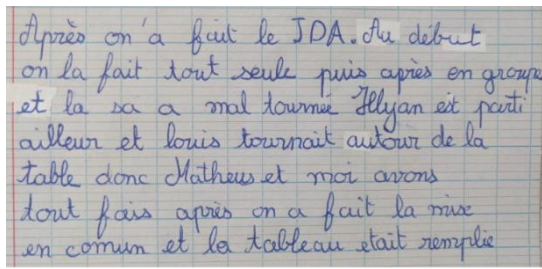 Après on'a fait le JDA. Au début
on la fait tout seule puis après en groupe
et la sa a mal tournée Illyan est parti
ailleur et louis tournait autour de la
table donc Matheus et moi avons
tout fais après on a fait la mise
en comun et le tableau etait remplie